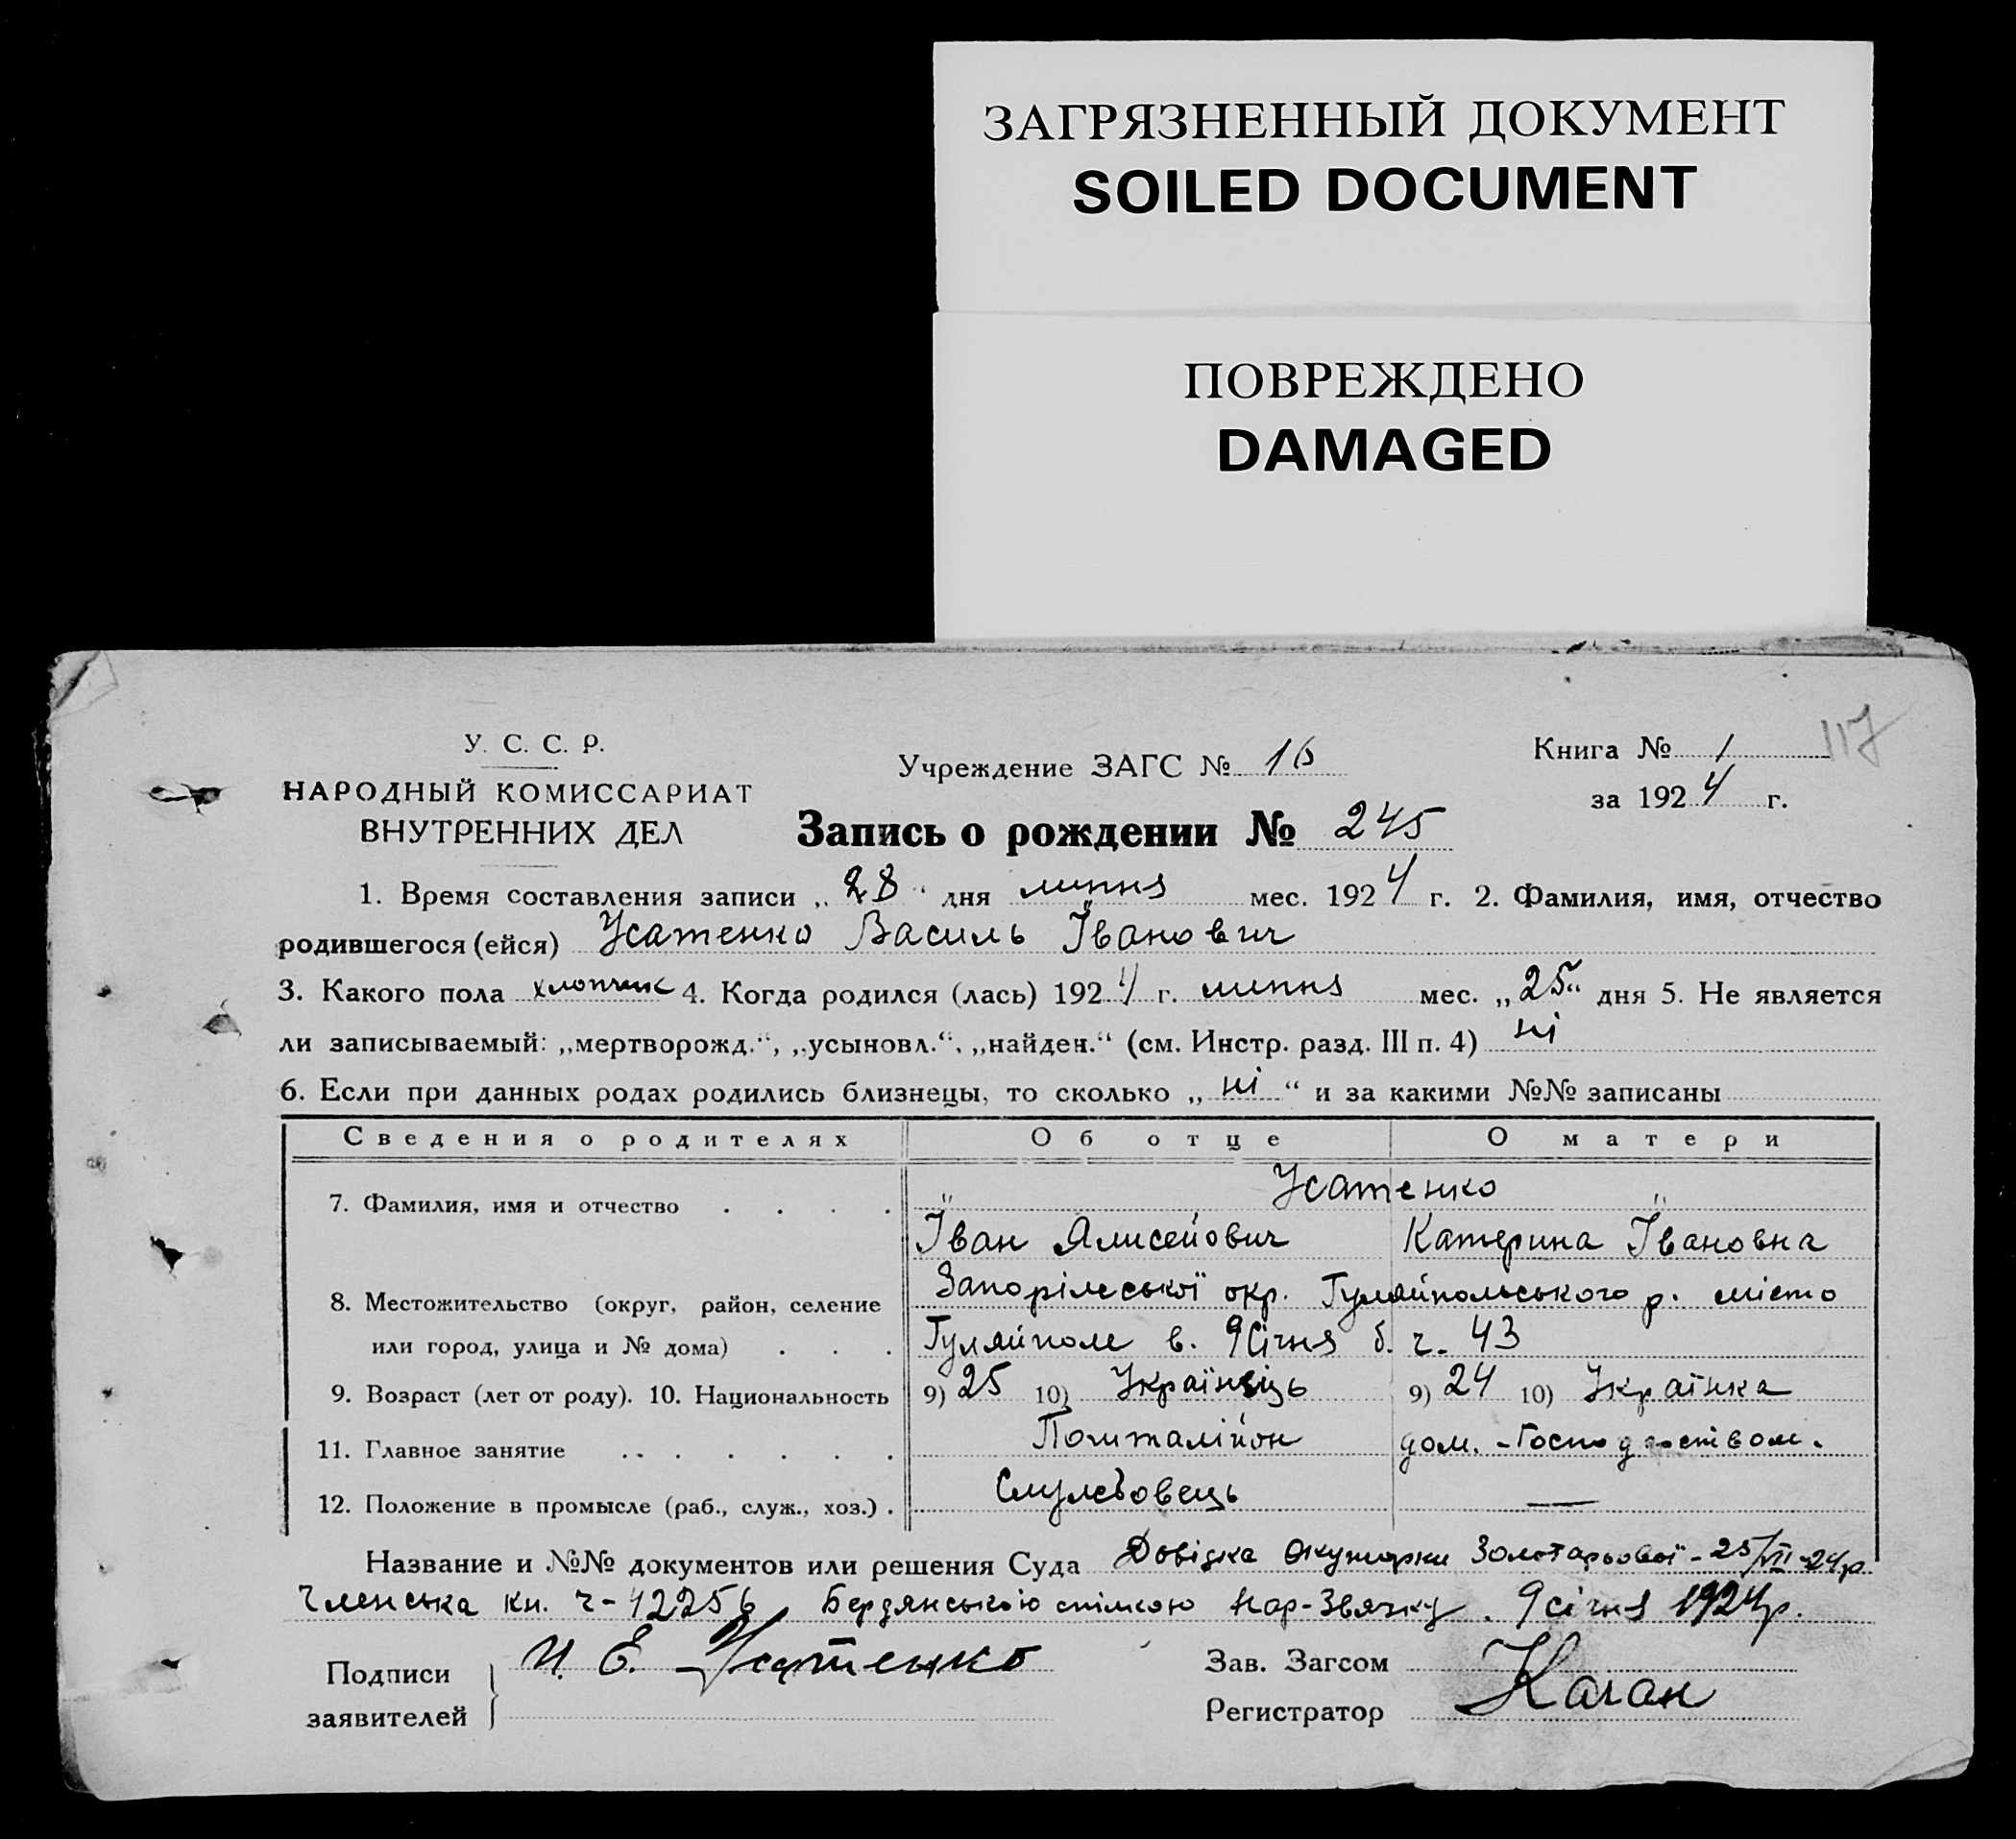 ЗАГРЯЗНЕННЫЙ ДОКУМЕНТ
SOILED DOCUMENT
ПОВРЕЖДЕНО
DAMAGED
У. С. С. Р.
НАРОДНЫЙ КОМИССАРИАТ
ВНУТРЕННИХ ДЕЛ
Учреждение ЗАГС № 16
Книга № 1
117
за 1924 г.
Запись о рождении № 245
1. Время составления записи „28“ дня липня мес. 1924 г. 2. Фамилия, имя, отчество
родившегося (ейся) Усатенко Василь Іванович
3. Какого пола хлопчик 4. Когда родился (лась) 1924 г. липня мес. „25“ дня 5. Не является
ли записываемый: „мертворожд.“, „усыновл.“, „найден.“ (см. Инстр. разд. III п. 4) ні
6. Если при данных родах родились близнецы, то сколько „ні“ и за какими №№ записаны
Сведения о родителях Об отце О матери
7. Фамилия, имя и отчество " Усатенко "
Іван Ялисейович Катерина Івановна
8. Местожительство (округ, район, селение Запоріжської окр. Гуляйпольського р. місто
или город, улица и № дома) Гуляйполе в. 9 Січня б. ч. 43
9. Возраст (лет от роду). 10. Национальность 9) 25 10) Українець 9) 24 10) Українка
11. Главное занятие Почиталійон дом. - Господарством.
12. Положение в промысле (раб., служ., хоз.) Службовець —
Название и №№ документов или решения Суда Довідка Окушорки Золотарьової - 25/VII-24р.
Членська кн. ч-42256 Бердянською спілкою Нар-Звязку. 9 січня 1924р.
Подписи заявителей И. Е. Усатенко
Зав. Загсом
Регистратор Каган